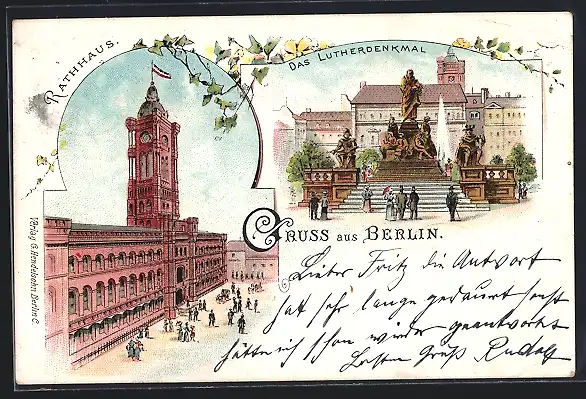 RATHHAUS.
DAS LUTHERDENKMAL
GRUSS AUS BERLIN.
Verlag G. Hendelsohn Berlin C
Lieber Fritz die Antwort
hat sehr lange gedauert sonst
hätte ich schon wieder geantwortet
Besten Gruß Rudolf